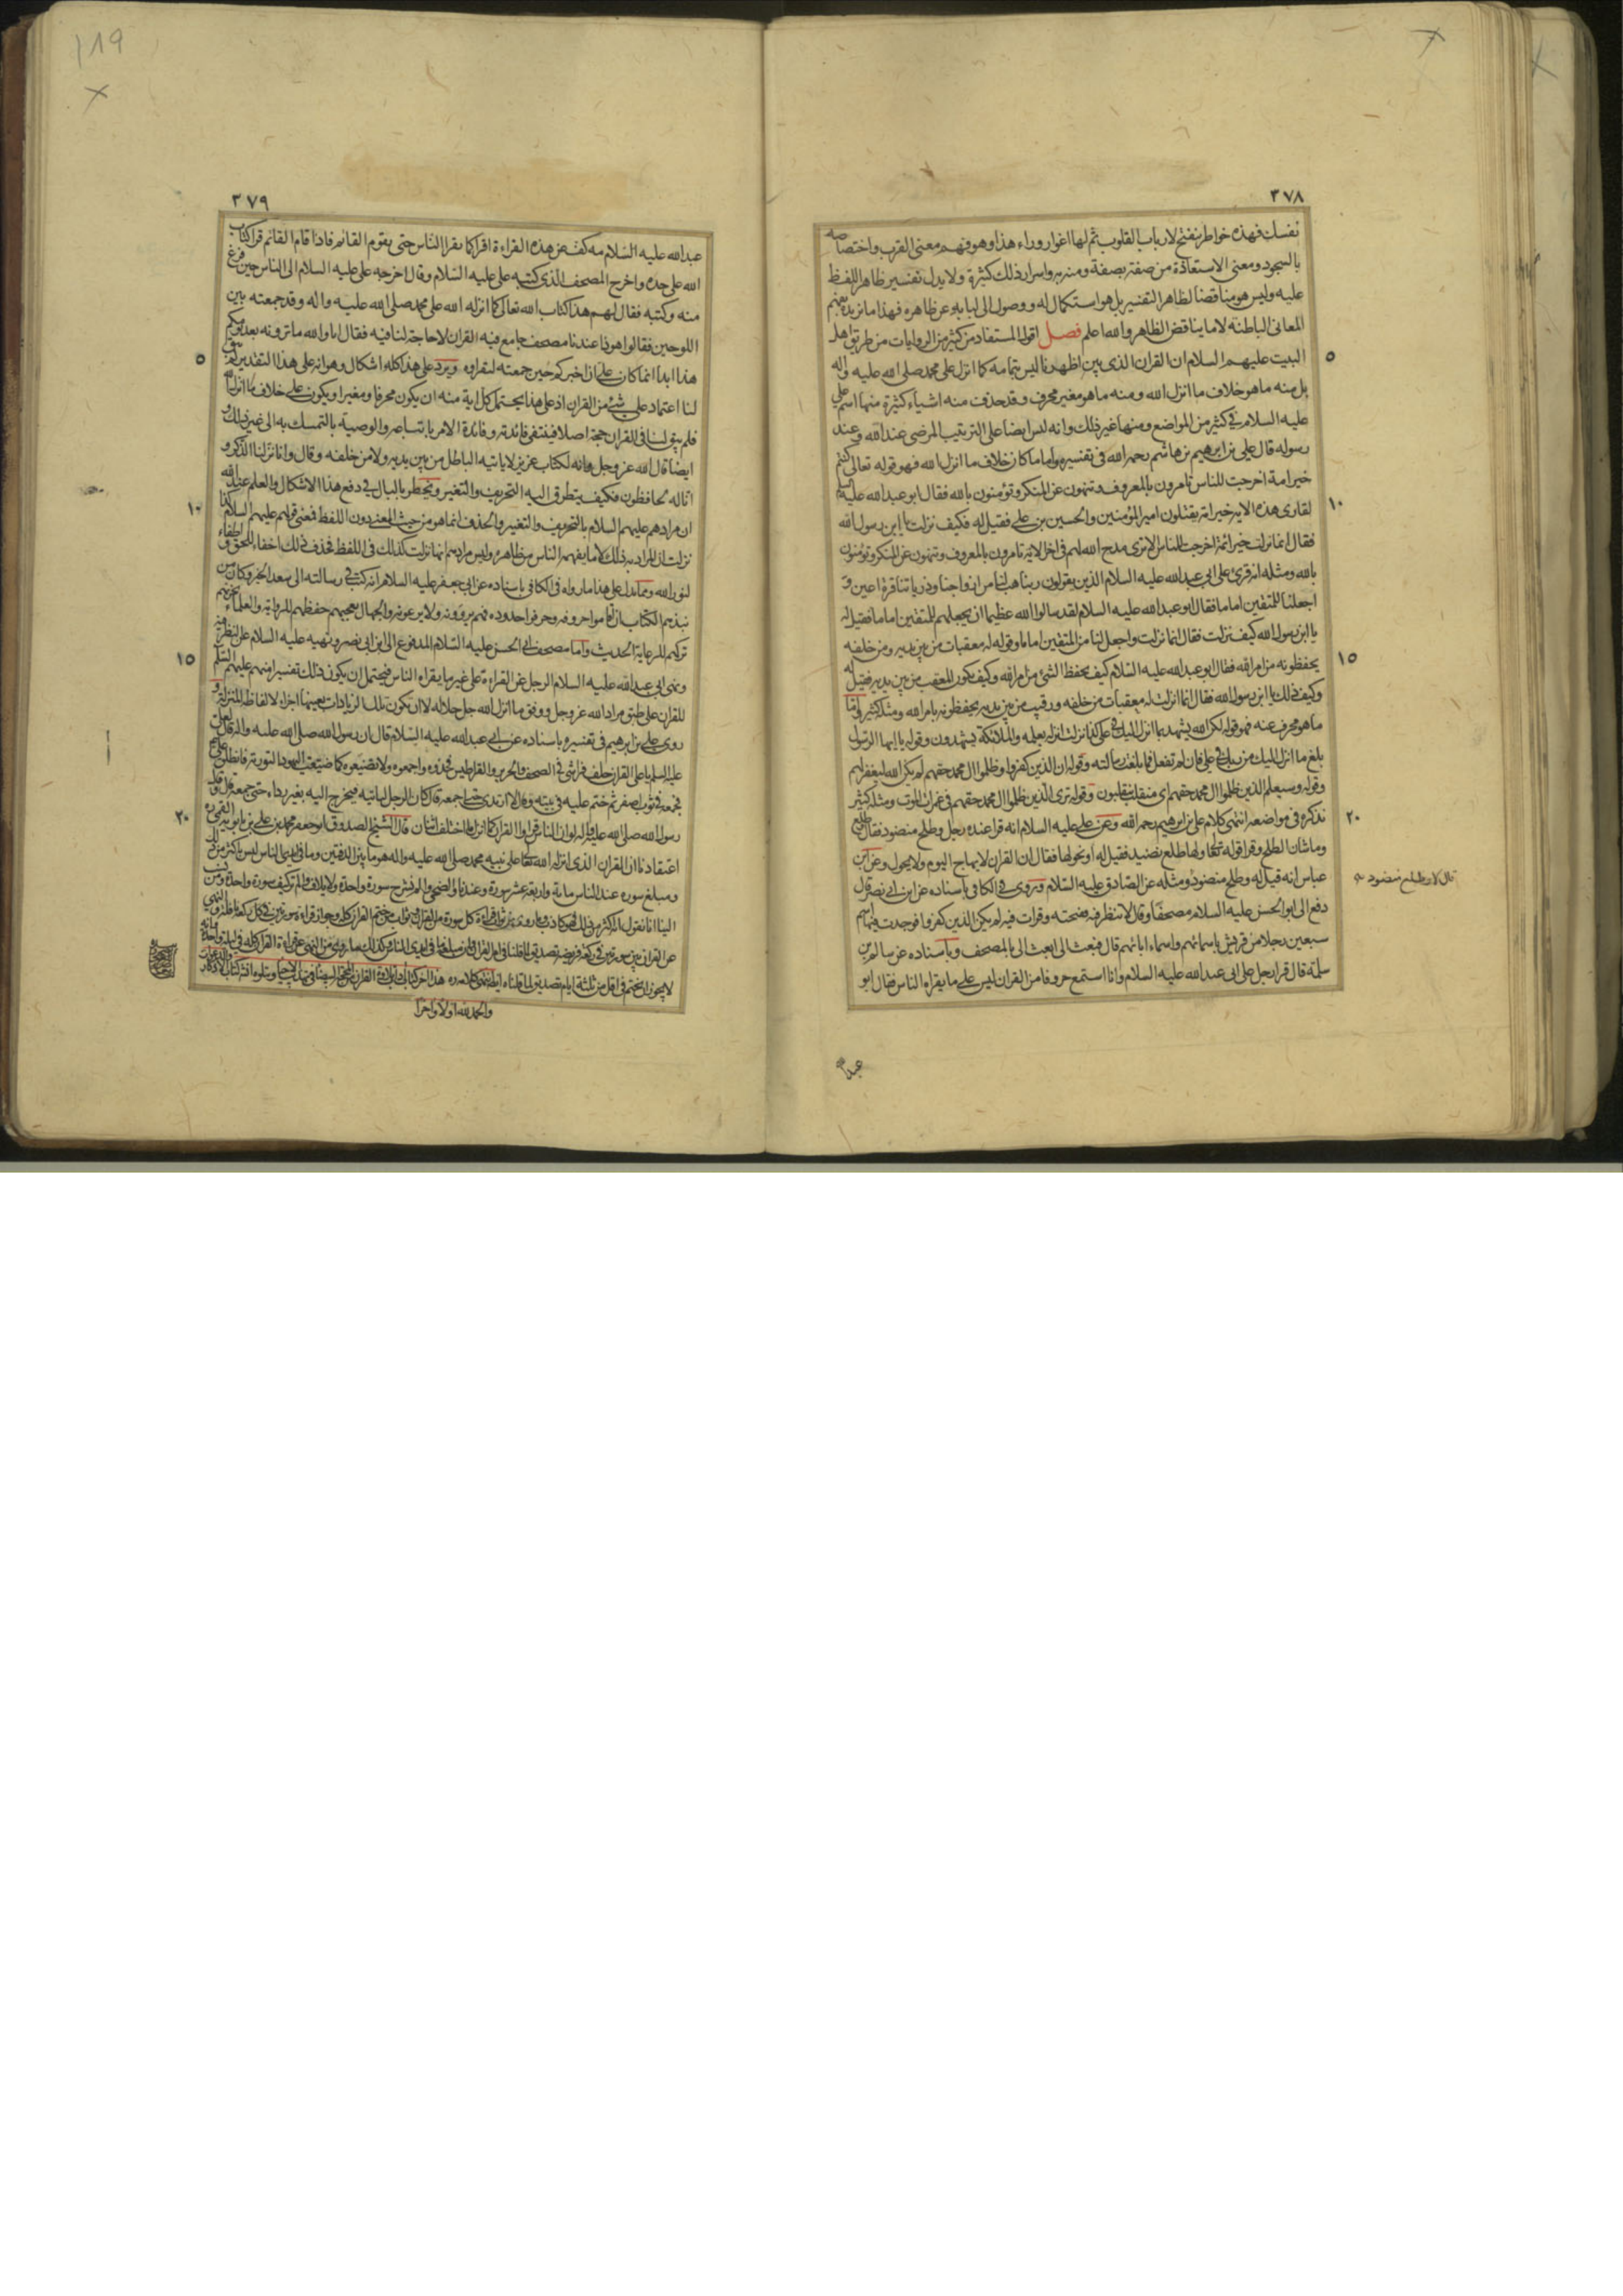 ٣٧٨
نفسك فهذه خواطر تنفتح لارباب القلوب ثم لها اغوار وراء هذا وهو فهم معنى القرب واختصاصه
بالسجود ومعنى الاستعاذة من صفة بصفة ومنه به واسرار ذلك كثيرة ولا يدل تفسير ظاهر اللفظ
عليه وليس هو مناقضا لظاهر التفسير بل هو استكمال له ووصول الى لبابه عن ظاهره فهذا ما نريده بفهم
المعاني الباطنة لا ما يناقض الظاهر والله اعلم فصل اقول المستفاد من كثير من الروايات من طريق اهل
٥
البيت عليهم السلام ان القران الذي بين اظهرنا ليس بتمامه كما انزل على محمد صلى الله عليه واله
بل منه ما هو خلاف ما انزل الله ومنه ما هو مغير محرف وقد حذف منه اشياء كثيرة منها اسم علي
عليه السلام في كثير من المواضع ومنها غير ذلك وانه ليس ايضا على الترتيب المرضي عند الله وعند
رسوله قال علي بن ابرهيم بن هاشم رحمه الله في تفسيره واما ما كان خلاف ما انزل الله فهو قوله تعالى كنتم
خير امة اخرجت للناس تامرون بالمعروف وتنهون عن المنكر وتؤمنون بالله فقال ابو عبد الله عليه السلام
١٠
لقاري هذه الاية خير امة يقتلون امير المؤمنين والحسين بن علي فقيل له فكيف نزلت يا ابن رسول الله
فقال انما نزلت خير ائمة اخرجت للناس الا ترى مدح الله لهم في اخر الاية تامرون بالمعروف وتنهون عن المنكر وتؤمنون
بالله ومثله انه قرئ على ابي عبد الله عليه السلام الذين يقولون ربنا هب لنا من ازواجنا وذرياتنا قرة اعين و
اجعلنا للمتقين اماما فقال ابو عبد الله عليه السلام لقد سالوا الله عظيما ان يجعلهم للمتقين اماما فقيل له
يا ابن رسول الله كيف نزلت فقال انما نزلت واجعل لنا من المتقين اماما وقوله له معقبات من بين يديه ومن خلفه
١٥
يحفظونه من امر الله فقال ابو عبد الله عليه السلام كيف يحفظ الشئ من امر الله وكيف يكون المعقب من بين يديه فقيل له
وكيف ذلك يا ابن رسول الله فقال انما انزلت له معقبات من خلفه ورقيب من بين يديه يحفظونه بامر الله ومثله كثير واما
ما هو محرف عنه فهو قوله لكن الله يشهد بما انزل اليك في علي كذا نزلت انزله بعلمه والملائكة يشهدون وقوله يا ايها الرسول
بلغ ما انزل اليك من ربك في علي فان لم تفعل فما بلغت رسالته وقوله ان الذين كفروا وظلموا ال محمد حقهم لم يكن الله ليغفر لهم
وقوله وسيعلم الذين ظلموا ال محمد حقهم اي منقلب ينقلبون وقوله ترى الذين ظلموا ال محمد حقهم في غمرات الموت ومثله كثير
٢٠
نذكره في مواضعه انتهى كلام علي بن ابرهيم رحمه الله وعن علي عليه السلام انه قرا عنده رجل وطلح منضود فقال
وما شان الطلح وقرا قوله لها طلع نضيد فقيل له او نحولها فقال ان القران لا يهاج اليوم ولا يحول وعن ابن
عباس انه قيل له وطلح منضود ومثله عن الصادق عليه السلام وروى في الكافي باسناده عن ابن ابي نصر قال
قال لا وطلع منضود
دفع الي ابو الحسن عليه السلام مصحفا وقال لا تنظر فيه ففتحته وقرات فيه لم يكن الذين كفروا فوجدت فيها اسم
سبعين رجلا من قريش باسمائهم واسماء ابائهم قال فبعث الي ابعث الي بالمصحف وباسناده عن سالم بن
سلمة قال قرا رجل على ابي عبد الله عليه السلام وانا استمع حروفا من القران ليس على ما يقراه الناس فقال ابو
عبد الله
٣٧٩
عبد الله عليه السلام مه كف عن هذه القراءة اقرا كما يقرا الناس حتى يقوم القائم فاذا قام القائم قرا كتاب
الله على حده واخرج المصحف الذي كتبه علي عليه السلام وقال اخرجه علي عليه السلام الى الناس حين فرغ
منه وكتبه فقال لهم هذا كتاب الله تعالى كما انزله الله على محمد صلى الله عليه واله وقد جمعته بين
اللوحين فقالوا هو ذا عندنا مصحف جامع فيه القران لا حاجة لنا فيه فقال اما والله ما ترونه بعد يومكم
٥
هذا ابدا انما كان علي ان اخبركم حين جمعته لتقراوه ويرد على هذا كله اشكال وهو انه على هذا التقدير لم يبق
لنا اعتماد على شئ من القران اذ على هذا يحتمل كل اية منه ان يكون محرفا ومغيرا ويكون على خلاف ما انزل الله
فلم يبق لنا في القران حجة اصلا فينتفي فائدته وفائدة الامر باتباعه والوصية بالتمسك به الى غير ذلك
ايضا قال الله عز وجل وانه لكتاب عزيز لا ياتيه الباطل من بين يديه ولا من خلفه وقال وانا نزلنا الذكر و
انا له لحافظون فكيف يتطرق اليه التحريف والتغيير ويخطر بالبال في دفع هذا الاشكال والعلم عند الله
١٠
ان مرادهم عليهم السلام بالتحريف والتغيير والحذف انما هو من حيث المعنى دون اللفظ فمعنى قولهم عليهم السلام كذا
نزلت ان المراد به ذلك لا ما يفهمه الناس من ظاهره وليس مرادهم انها نزلت كذلك في اللفظ فحذف ذلك اخفاء للحق و اطفاء
لنور الله ومما يدل على هذا ما رواه في الكافي باسناده عن ابي جعفر عليه السلام انه كتب في رسالته الى سعد الخير وكان من
نبذهم الكتاب ان اقاموا حروفه وحرفوا حدوده فهم يروونه ولا يرعونه والجهال يعجبهم حفظهم للرواية والعلماء يحزنهم
تركهم للرعاية الحديث واما مصحف ابي الحسن عليه السلام المدفوع الى ابن ابي نصر ونهيه عليه السلام عن النظر فيه
١٥
ونهى ابي عبد الله عليه السلام الرجل عن القراءة على غير ما يقراه الناس فيحتمل ان يكون ذلك تفسيرا منهم عليهم السلام
للقران على طبق مراد الله عز وجل ووفق ما انزل الله جل جلاله لا ان تكون تلك الزيادات بعينها اجزاء لالفاظ المنزلة و
روى علي بن ابرهيم في تفسيره باسناده عن ابي عبد الله عليه السلام قال ان رسول الله صلى الله عليه واله قال لعلي
عليه السلام يا علي القران خلف فراشي في الصحف والحرير والقراطيس فخذوه واجمعوه ولا تضيعوه كما ضيعت اليهود التورية فانطلق علي ع
فجمعه في ثوب اصفر ثم ختم عليه في بيته وقال لا ارتدي حتى اجمعه قال كان الرجل لياتيه فيخرج اليه بغير رداء حتى جمعه قال وقال
٢٠
رسول الله صلى الله عليه واله لو ان الناس قراوا القران كما انزل ما اختلف اثنان قال الشيخ الصدوق ابو جعفر محمد بن علي بن بابويه القمي ره
اعتقادنا ان القران الذي انزله الله تعالى على نبيه محمد صلى الله عليه واله هو ما بين الدفتين وما في ايدي الناس ليس باكثر من ذلك
ومبلغ سوره عند الناس مائة واربعة عشر سورة وعندنا والضحى والم نشرح سورة واحدة ولايلاف والم تر كيف سورة واحدة ومن نسب
الينا انا نقول انه اكثر من ذلك فهو كاذب وما روى من ثواب قراءة كل سورة من القران وثواب من ختم القران كله وجواز قراءة سورتين في كل ركعة نافلة والنهي
عن القران بين سورتين في ركعة فريضة تصديق لما قلناه في امر القران وان مبلغه ما في ايدي الناس وكذلك ما روى من النهي عن قراءة القران كله في ليلة واحدة وانه
لا يجوز ان يختم في اقل من ثلثة ايام تصديق لما قلناه ايضا انتهى كلامه ره هذا اخر كتاب اداب تلاوة القران من المحجة البيضاء في تهذيب الاحياء ويتلوه ان شاء الله كتاب الاذكار والدعوات
والحمد لله اولا واخرا